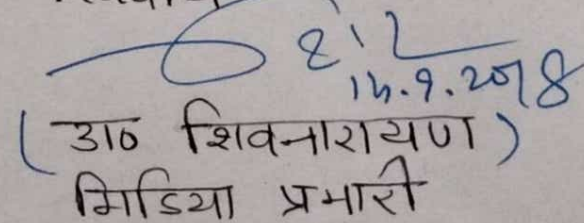 14.9.2018
(डा० शिवनारायण)
मिडिया प्रभारी